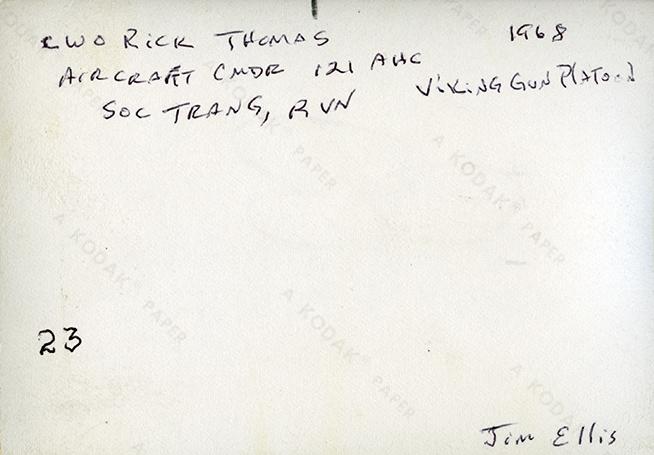 CWO RICK THOMAS 1968
AIRCRAFT CMDR 121 AHC VIKING GUN PLATOON
SOC TRANG, RVN
A KODAK PAPER
A KODAK® PAPER
A KODAK PAPER
A KODAK® PAPER
A KODAK
23
Jim Ellis